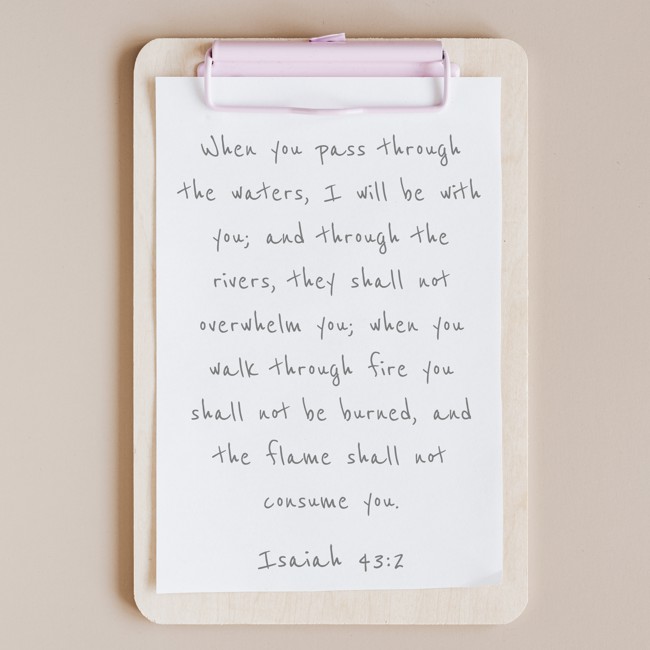 When you pass through
the waters, I will be with
you; and through the
rivers, they shall not
overwhelm you; when you
walk through fire you
shall not be burned, and
the flame shall not
consume you.
Isaiah 43:2